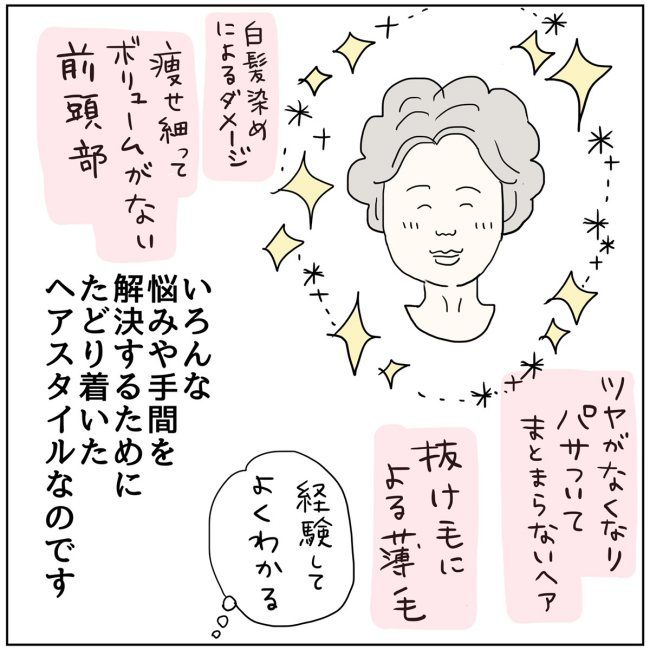 白髪染め
によるダメージ
痩せ細って
ボリュームがない
前頭部
いろんな
悩みや手間を
解決するために
たどり着いた
ヘアスタイルなのです
ツヤがなくなり
パサついて
まとまらないヘア
抜け毛に
よる薄毛
経験して
よくわかる